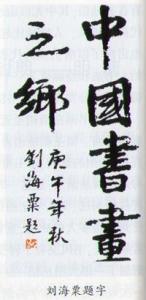 中國書畫
之鄉
庚午年秋
劉海粟題
刘海粟题字